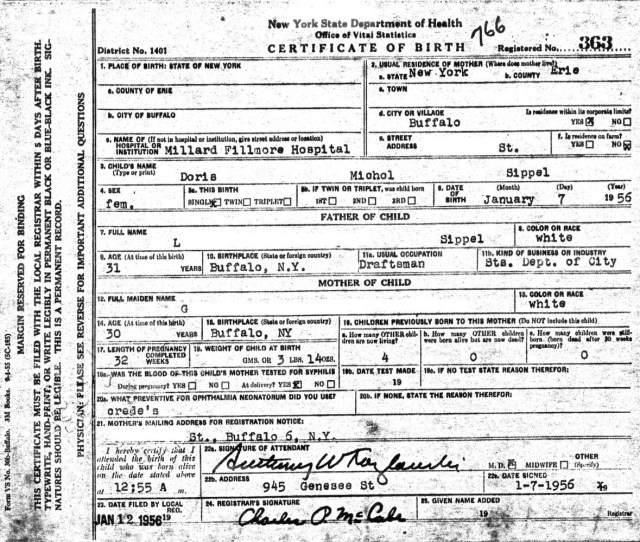 New York State Department of Health
Office of Vital Statistics
766
District No. 1401
CERTIFICATE OF BIRTH
Registered No. 363
1. PLACE OF BIRTH: STATE OF NEW YORK
2. USUAL RESIDENCE OF MOTHER (Where does mother live?)
a. STATE New York
b. COUNTY Erie
a. COUNTY OF ERIE
c. TOWN
b. CITY OF BUFFALO
d. CITY OR VILLAGE Buffalo
Is residence within its corporate limits?
YES NO
c. NAME OF (If not in hospital or institution, give street address or location)
HOSPITAL OR INSTITUTION Millard Fillmore Hospital
e. STREET ADDRESS St.
f. Is residence on farm?
YES NO
3. CHILD'S NAME
(Type or print)
Doris Michol Sippel
4. SEX
fem.
5a. THIS BIRTH
SINGLE TWIN TRIPLET
5b. IF TWIN OR TRIPLET, was child born
1ST 2ND 3RD
6. DATE OF BIRTH
(Month) (Day) (Year)
January 7 1956
FATHER OF CHILD
7. FULL NAME
L Sippel
8. COLOR OR RACE
white
9. AGE (At time of this birth)
31 YEARS
10. BIRTHPLACE (State or foreign country)
Buffalo, N.Y.
11a. USUAL OCCUPATION
Draftsman
11b. KIND OF BUSINESS OR INDUSTRY
Sts. Dept. of City
MOTHER OF CHILD
12. FULL MAIDEN NAME
G
13. COLOR OR RACE
white
14. AGE (At time of this birth)
30 YEARS
15. BIRTHPLACE (State or foreign country)
Buffalo, NY
16. CHILDREN PREVIOUSLY BORN TO THIS MOTHER (Do NOT include this child)
a. How many OTHER children are now living?
4
b. How many OTHER children were born alive but are now dead?
0
c. How many children were stillborn (born dead after 20 weeks pregnancy)?
0
17. LENGTH OF PREGNANCY
32 COMPLETED WEEKS
18. WEIGHT OF CHILD AT BIRTH
GMS. OR 3 LBS. 14 OZS.
19a. WAS THE BLOOD OF THIS CHILD'S MOTHER TESTED FOR SYPHILIS
During pregnancy? YES NO At delivery? YES NO
19b. DATE TEST MADE
19
19c. IF NO TEST STATE REASON THEREFOR:
20a. WHAT PREVENTIVE FOR OPHTHALMIA NEONATORUM DID YOU USE?
crede's
20b. IF NONE, STATE THE REASON THEREFOR:
21. MOTHER'S MAILING ADDRESS FOR REGISTRATION NOTICE:
St., Buffalo 6, N.Y.
I hereby certify that I attended the birth of this child who was born alive on the date stated above at 12:55 A m.
22a. SIGNATURE OF ATTENDANT
M.D. MIDWIFE OTHER (Specify)
22b. ADDRESS
945 Genesee St
22c. DATE SIGNED
1-7-1956
23. DATE FILED BY LOCAL REG.
JAN 12 1956 19
24. REGISTRAR'S SIGNATURE
Charles P. McCabe
25. GIVEN NAME ADDED
19 Registrar
MARGIN RESERVED FOR BINDING
THIS CERTIFICATE MUST BE FILED WITH THE LOCAL REGISTRAR WITHIN 5 DAYS AFTER BIRTH.
TYPEWRITE, HAND-PRINT, OR WRITE LEGIBLY IN PERMANENT BLACK OR BLUE-BLACK INK. SIG-
NATURES SHOULD BE LEGIBLE. THIS IS A PERMANENT RECORD.
PHYSICIAN, PLEASE SEE REVERSE FOR IMPORTANT ADDITIONAL QUESTIONS